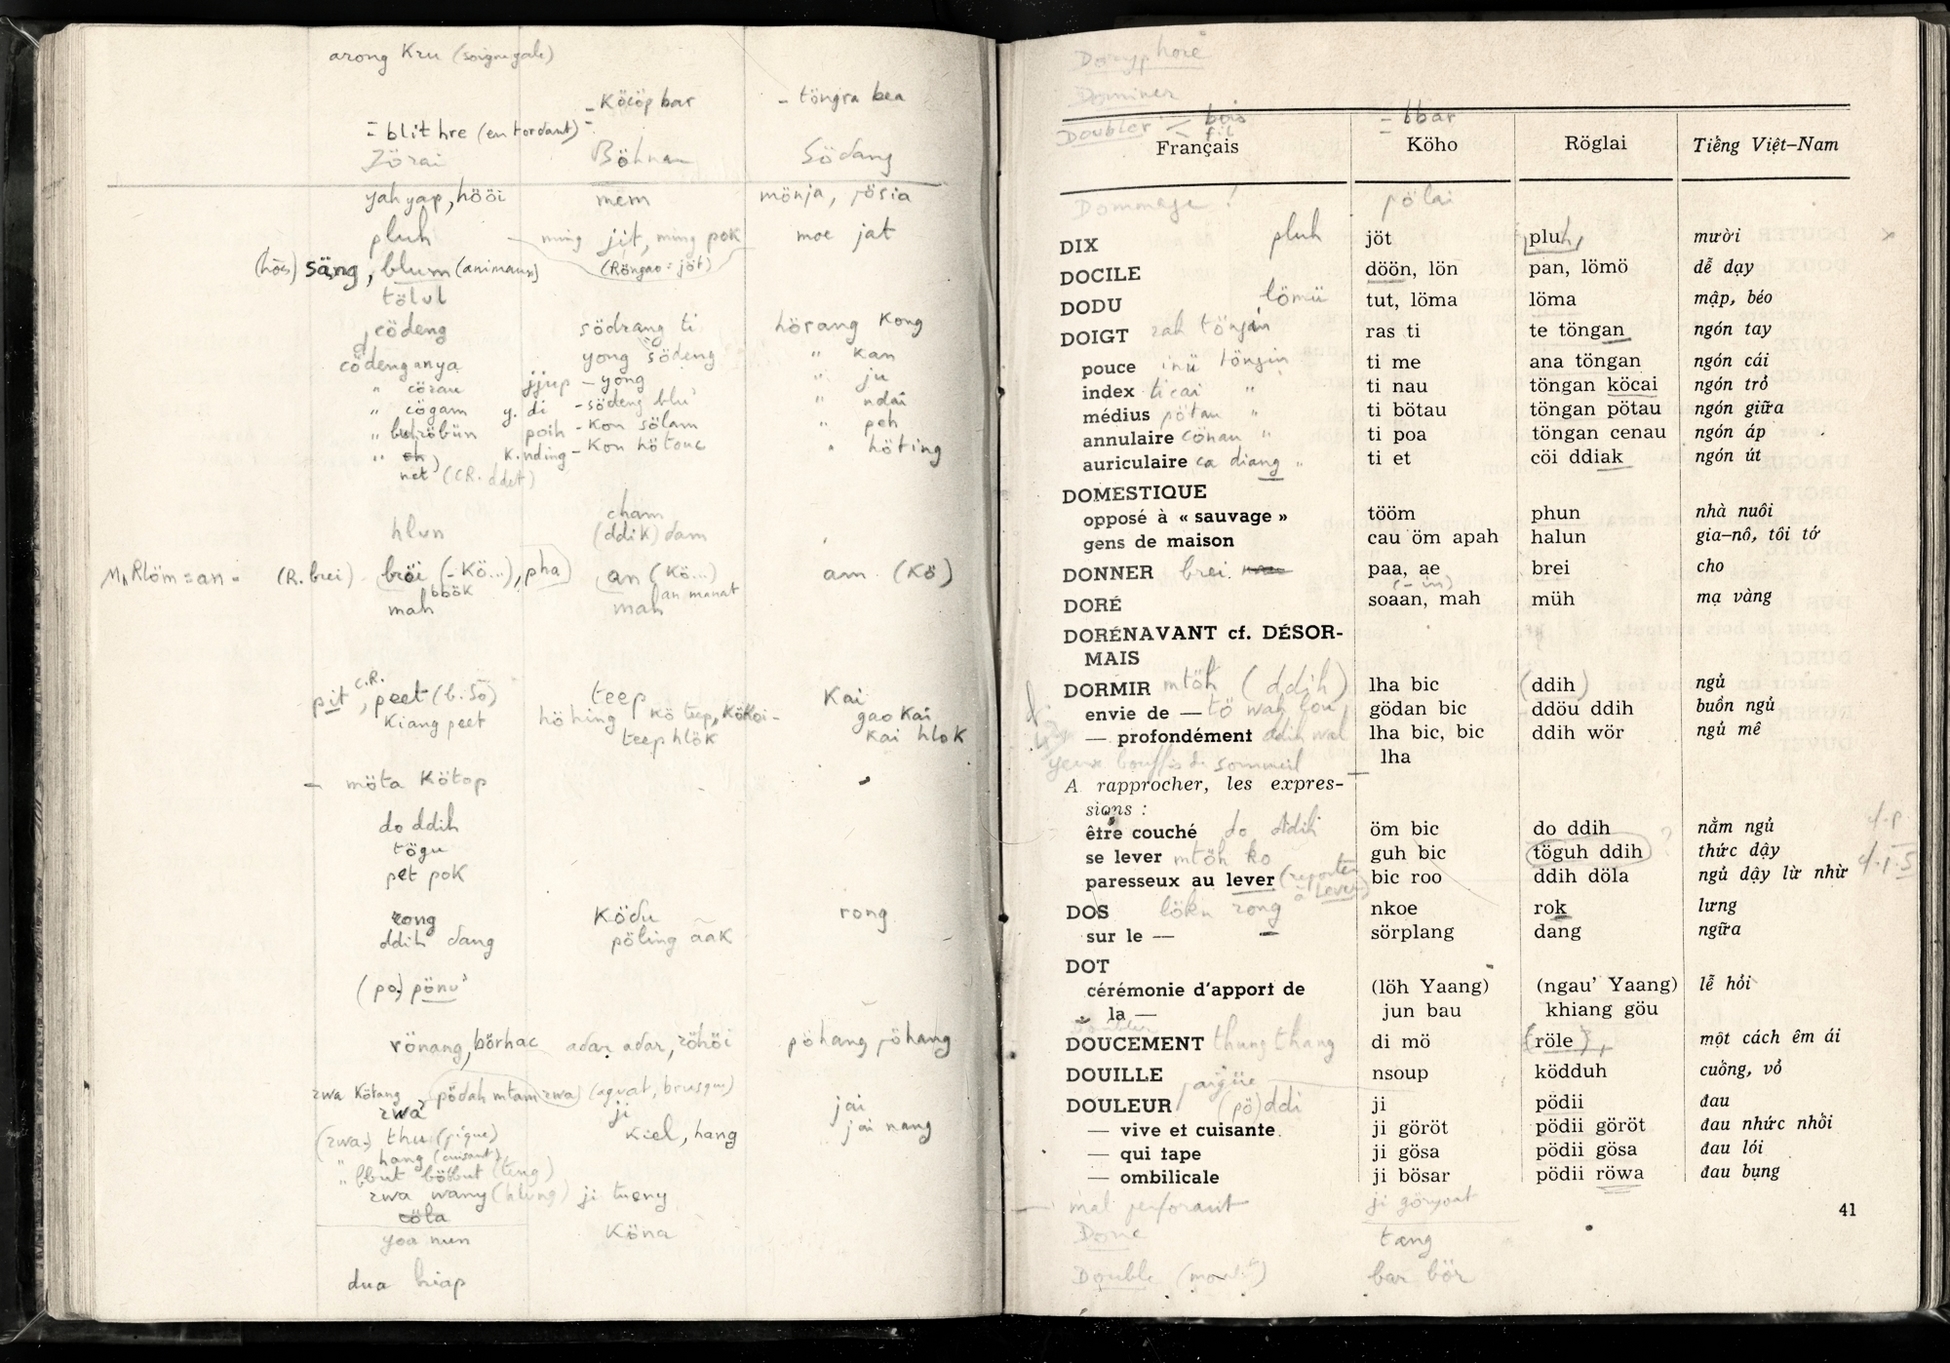 arong Kru (soigne gale)
- Köcöp bar - töngra bea
= blit hre (en tordant) -
Jörai Böhnar Södang
yah yap, hööi mem mönja, jösia
pluh ming jit, ming pok moe jat
säng, blum (animaux) (Röngao: jöt)
tölul
cödeng södrang ti hörang Kong
cödeng anya yong södeng " kan
" cörau jjrup - yong " ju
" cögam y. di - södeng blu' " ndai
" butröbün poih - Kon sölam " peh
" K.nding - Kon hötouc " höting
net (CR. ddet)
cham
hlun (ddik) dam
(R. brei) bröi (-Kö...), pha an (Kö...) am (Kö)
bbök an manat
mah mah
pit, C.R. peet (b. Sö) teep Kai
Kiang peet höhing kö teep, gao Kai
teep hlök Kai hlok
- möta Kötop
do ddih
tögu
pet pok
rong Ködu rong
ddih dang pöling ãak
(po) pönu'
rönang, börhac adar adar, röhöi pöhang jöhang
rwa Kötang pödah mtam rwa) (aguat, brusque)
rwa ji jai
(rwa) thu (pique) Kiel, hang jai nang
" hang (cuisant)
" bbut böbbut (ting)
rwa wany (hlung) ji tueny
cöla
yoa nun Köna
dua hiap
Doryphore
Dominer
Doubler = bois = bbar
fil
Français Köho Röglai Tiếng Việt–Nam
Dommage ! pölai
DIX pluh jöt pluh, mười
DOCILE döön, lön pan, lömö dễ dạy
DODU lömü tut, löma löma mập, béo
DOIGT rah töngán ras ti te töngan ngón tay
pouce inü töngin ti me ana töngan ngón cái
index ticai " ti nau töngan köcai ngón trỏ
médius pötau " ti bötau töngan pötau ngón giữa
annulaire cönau " ti poa töngan cenau ngón áp
auriculaire ca diang " ti et cöi ddiak ngón út
DOMESTIQUE
opposé à « sauvage » tööm phun nhà nuôi
gens de maison cau öm apah halun gia–nô, tôi tớ
DONNER brei paa, ae brei cho
DORÉ soaan, mah müh mạ vàng
DORÉNAVANT cf. DÉSOR-
MAIS
DORMIR mtöh (ddih) lha bic (ddih) ngủ
envie de — gödan bic ddöu ddih buồn ngủ
— profondément ddih wal lha bic, bic ddih wör ngủ mê
yeux bouffis de sommeil lha
A rapprocher, les expres-
sions :
être couché do ddih öm bic do ddih nằm ngủ
se lever mtöh ko guh bic töguh ddih ? thức dậy
paresseux au lever (reporter à Lever) bic roo ddih döla ngủ dậy lừ nhừ
DOS löku rong nkoe rok lưng
sur le — sörplang dang ngữa
DOT
cérémonie d'apport de (löh Yaang) (ngau' Yaang) lễ hỏi
la — jun bau khiang göu
DOUCEMENT thung thang di mö (röle), một cách êm ái
DOUILLE nsoup ködduh cuồng, vỏ
DOULEUR (pö)ddi ji pödii đau
— vive et cuisante ji göröt pödii göröt đau nhức nhồi
— qui tape ji gösa pödii gösa đau lói
— ombilicale ji bösar pödii röwa đau bụng
mal perforant ji göryoat
41
Donc tang
Double bar bör